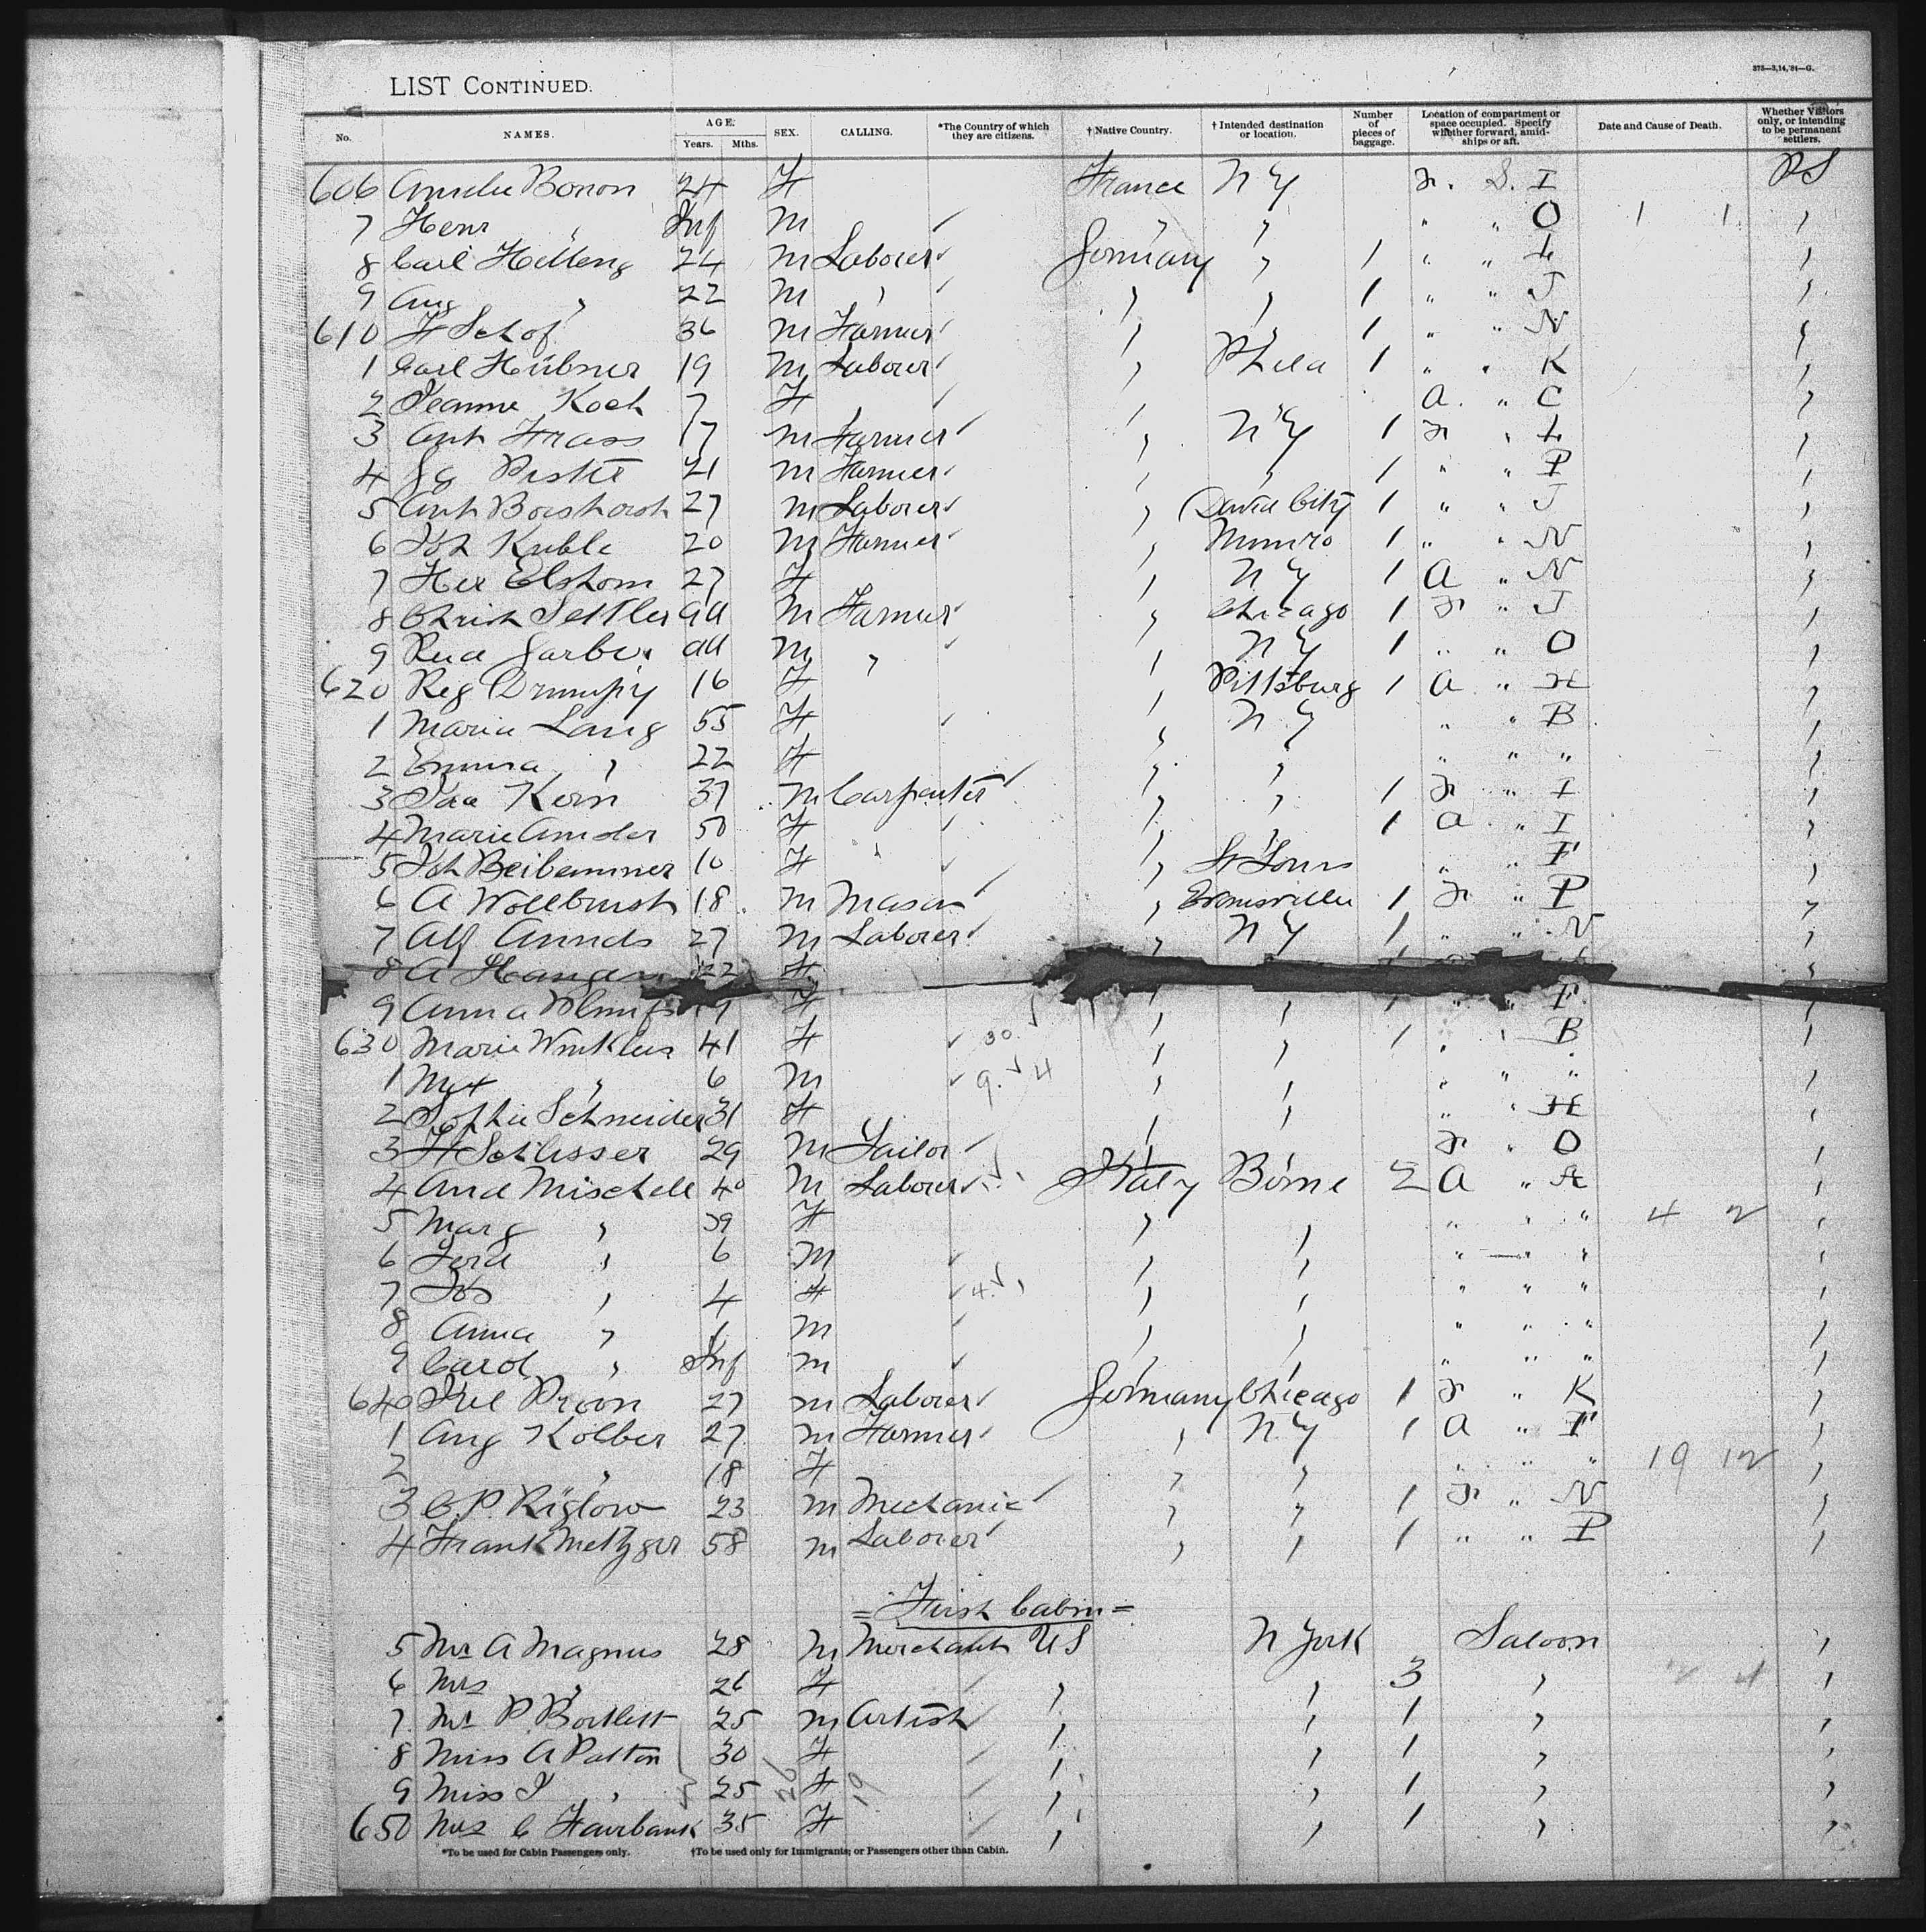 375—3,14,'91—G.
LIST CONTINUED.
No. NAMES. AGE. Years. Mths. SEX. CALLING. *The Country of which they are citizens. † Native Country. † Intended destination or location. Number of pieces of baggage. Location of compartment or space occupied. Specify whether forward, amidships or aft. Date and Cause of Death. Whether Visitors only, or intending to be permanent settlers.
606 Amelie Bonon 24 F France N Y Fr. S. I PS
7 Henr " Inf M " " " " O 1 1 "
8 Carl Helleng 24 M Laborer Germany " 1 " " L "
9 Aug " 22 M " " " 1 " " J "
610 F Schof 36 M Farmer " " 1 " " N "
1 Carl Hübner 19 M Laborer " Phila 1 " " K "
2 Jeanne Koch 7 F " " A " C "
3 Ant Frass 17 M Farmer " N Y 1 Fr " L "
4 21 M Farmer " " 1 " " P "
5 Ant 27 M Laborer " David City 1 " " J "
6 Joh Kuble 20 M Farmer " Munro 1 " " N "
7 Her Elshom 27 F " N Y 1 A " N "
8 Christ Settler ad M Farmer " Chicago 1 Fr " J "
9 Rud Garber ad M " " N Y 1 " " O "
620 Reg 16 F " Pittsburg 1 A " H "
1 Maria Lang 55 F " N Y " " B "
2 Emma " 22 F " " " " " "
3 Kern 37 M Carpenter " " 1 Fr " I "
4 Marie Amsler 50 F " " 1 A " I "
5 10 F " St Louis " " F "
6 A Wollbursh 18 M Mason " Evansville 1 Fr " P "
7 Alf 27 M Laborer " N Y 1 " " N "
8 A 22 F "
9 Anna F " " " F "
630 Marie Winkler 41 F 30 " " 1 " " B "
1 Max " 6 M 9 4 " " " " " "
2 Sophie Schneider 31 F " " " " H "
3 F Schlisser 29 M Tailor " " Fr " O "
4 And Mischele 40 M Laborer Italy 2 A " A "
5 Marg " 39 F " " " " " 4 2 "
6 Ferd " 6 M " " " " " "
7 Jos " 4 F 4 " " " " " "
8 Anna " M " " " " " "
9 Carol " Inf M " " " " " "
640 27 M Laborer Germany Chicago 1 Fr " K "
1 Aug Kolber 27 M Farmer " N Y 1 A " F "
2 " 18 F " " " " " 19 12 "
3 C. P. Riglow 23 M Mechanic " " 1 Fr " N "
4 Frank Metzger 58 M Laborer " " 1 " " P "
= First Cabin =
5 Mr A Magnus 28 M Merchant US N York Saloon "
6 Mrs " 26 F " " 3 " 2 4 "
7 Mr P. Bartlett 25 M Artist " " 1 " "
8 Miss A Patton 30 F " " 1 " "
9 Miss J " 25 26 F 19 " " 1 " "
650 Mrs C Fairbank 35 F " " 1 " "
*To be used for Cabin Passengers only. †To be used only for Immigrants; or Passengers other than Cabin.